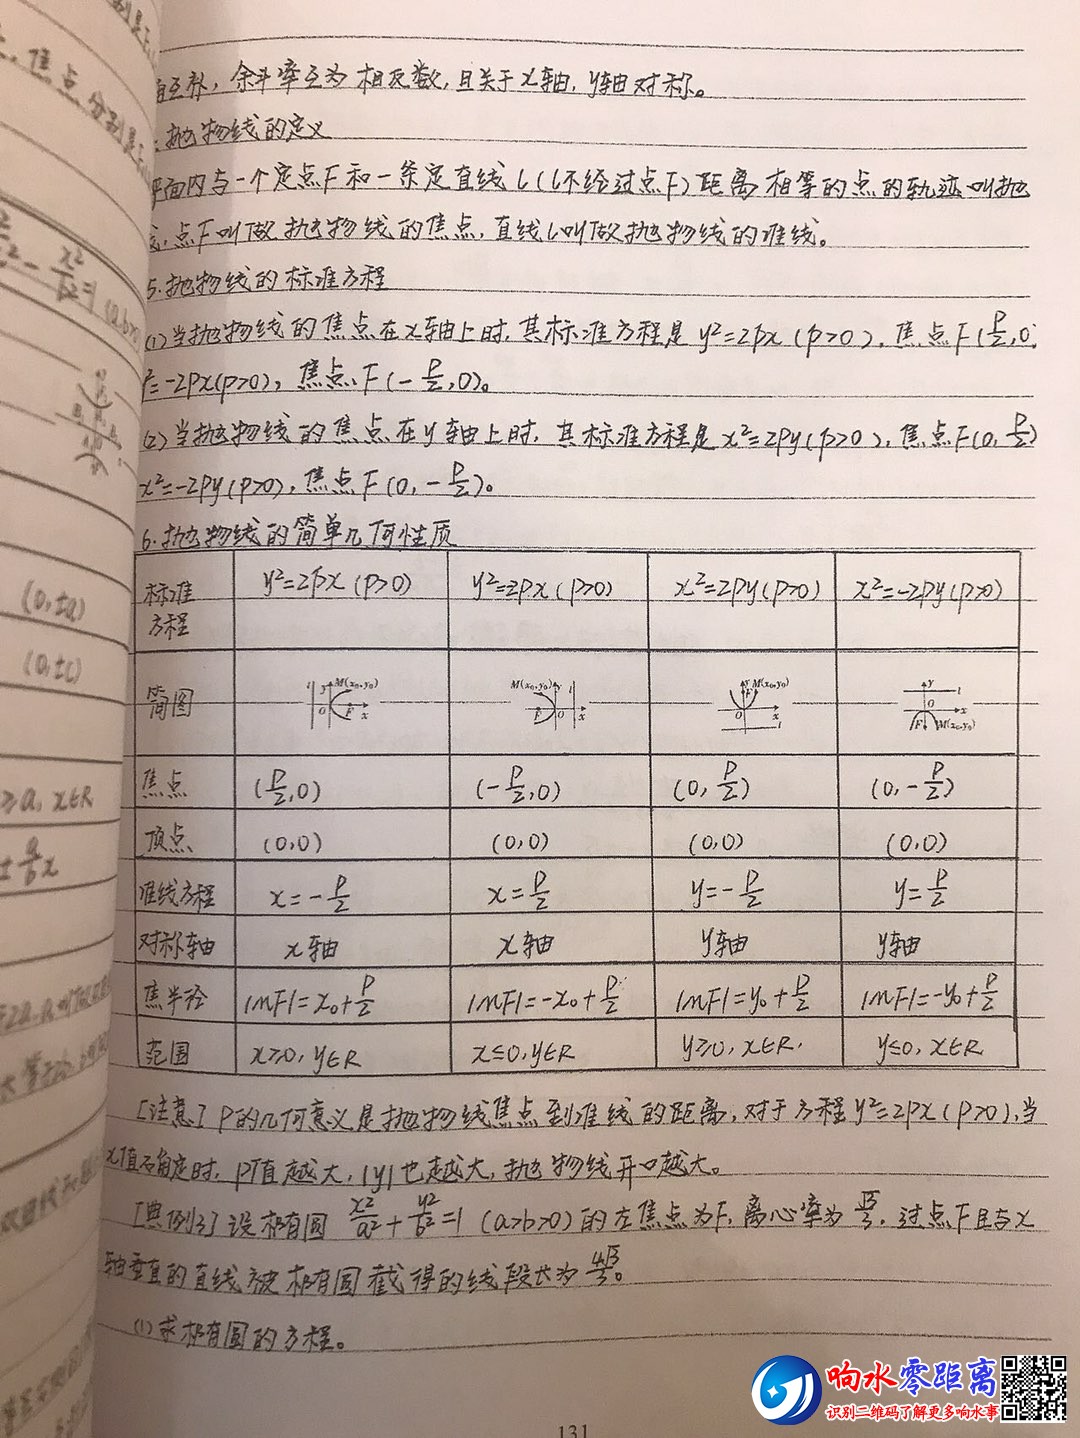 角互补，余斜率互为相反数，且关于x轴，y轴对称。
抛物线的定义
平面内与一个定点F和一条定直线l（l不经过点F）距离相等的点的轨迹叫抛
线，点F叫做抛物线的焦点，直线l叫做抛物线的准线。
5.抛物线的标准方程
(1)当抛物线的焦点在x轴上时，其标准方程是 y²=2px（p>0），焦点F(p/2,0
y²=-2px(p>0)，焦点F(-p/2,0)。
(2)当抛物线的焦点在y轴上时，其标准方程是x²=2py(p>0)，焦点F(0,p/2)
x²=-2py(p>0)，焦点F(0,-p/2)。
6.抛物线的简单几何性质
标准方程 y²=2px(p>0) y²=2px(p>0) x²=2py(p>0) x²=-2py(p>0)
简图
y M(x₀,y₀) l O F x
M(x₀,y₀) y l F O x
y M(x₀,y₀) F O x l
y l O x F M(x₀,y₀)
焦点 (p/2,0) (-p/2,0) (0,p/2) (0,-p/2)
顶点 (0,0) (0,0) (0,0) (0,0)
准线方程 x=-p/2 x=p/2 y=-p/2 y=p/2
对称轴 x轴 x轴 y轴 y轴
焦半径 |MF|=x₀+p/2 |MF|=-x₀+p/2 |MF|=y₀+p/2 |MF|=-y₀+p/2
范围 x≥0,y∈R x≤0,y∈R y≥0,x∈R. y≤0,x∈R
[注意] P的几何意义是抛物线焦点到准线的距离，对于方程y²=2px(p>0)，当
x值确定时，p值越大，|y|也越大，抛物线开口越大。
[典例3]设椭圆 x²/a²+y²/b²=1 (a>b>0)的左焦点为F，离心率为√3/3，过点F且与x
轴垂直的直线被椭圆截得的线段长为4√3/3。
(1)求椭圆的方程。
(0,±a)
(0,±c)
≥a, x∈R
±a/b x
131
响水零距离
识别二维码了解更多响水事